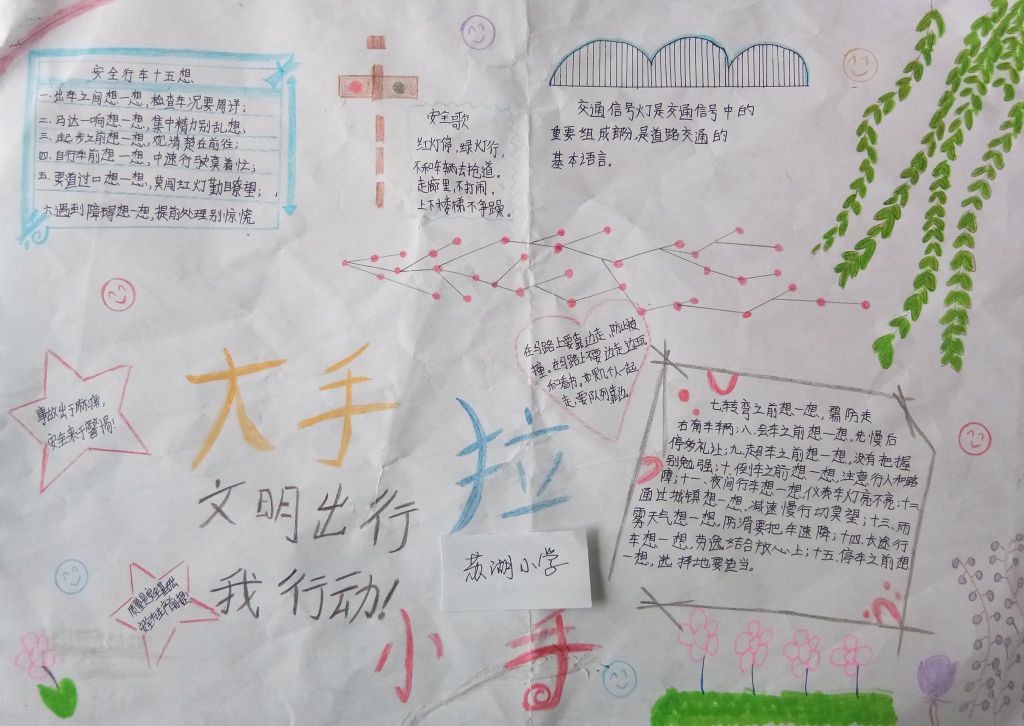 安全行车十五想
一.出车之间想一想,检查车况要周详;
二.马达一响想一想,集中精力别乱想,
三.起步之前想一想,观清楚在前往;
四.自行车前想一想,中速行驶莫着忙;
五.要道过口想一想,莫闯红灯勤瞭望;
六遇到障碍想一想,提前处理别惊慌
安全歌
红灯停,绿灯行,
不和车辆去抢道。
走廊里,不打闹,
上下楼梯不争躁。
交通信号灯是交通信号中的
重要组成部分,是道路交通的
基本语言。
在马路上要靠边走,防止被
撞。在马路上不要边走边玩
和看书。如果几个人一起
走,要队列靠边。
事故出于麻痹,
安全来于警惕!
大手
拉
小手
文明出行
我行动!
荻湖小学
质量是安全基础
安全为生产前提!
七.转弯之前想一想,需防走
右有车辆;八.会车之前想一想,先慢后
停多礼让;九.超车之前想一想,没有把握
别勉强;十.倒车之前想一想,注意行人和路
障;十一.夜间行车想一想,仪表车灯亮不亮;十二
通过城镇想一想,减速慢行切莫望;十三.雨
雾天气想一想,防滑要把车速降;十四.长途行
车想一想,劳逸结合放心上;十五.停车之前想
一想,选择地要妥当。